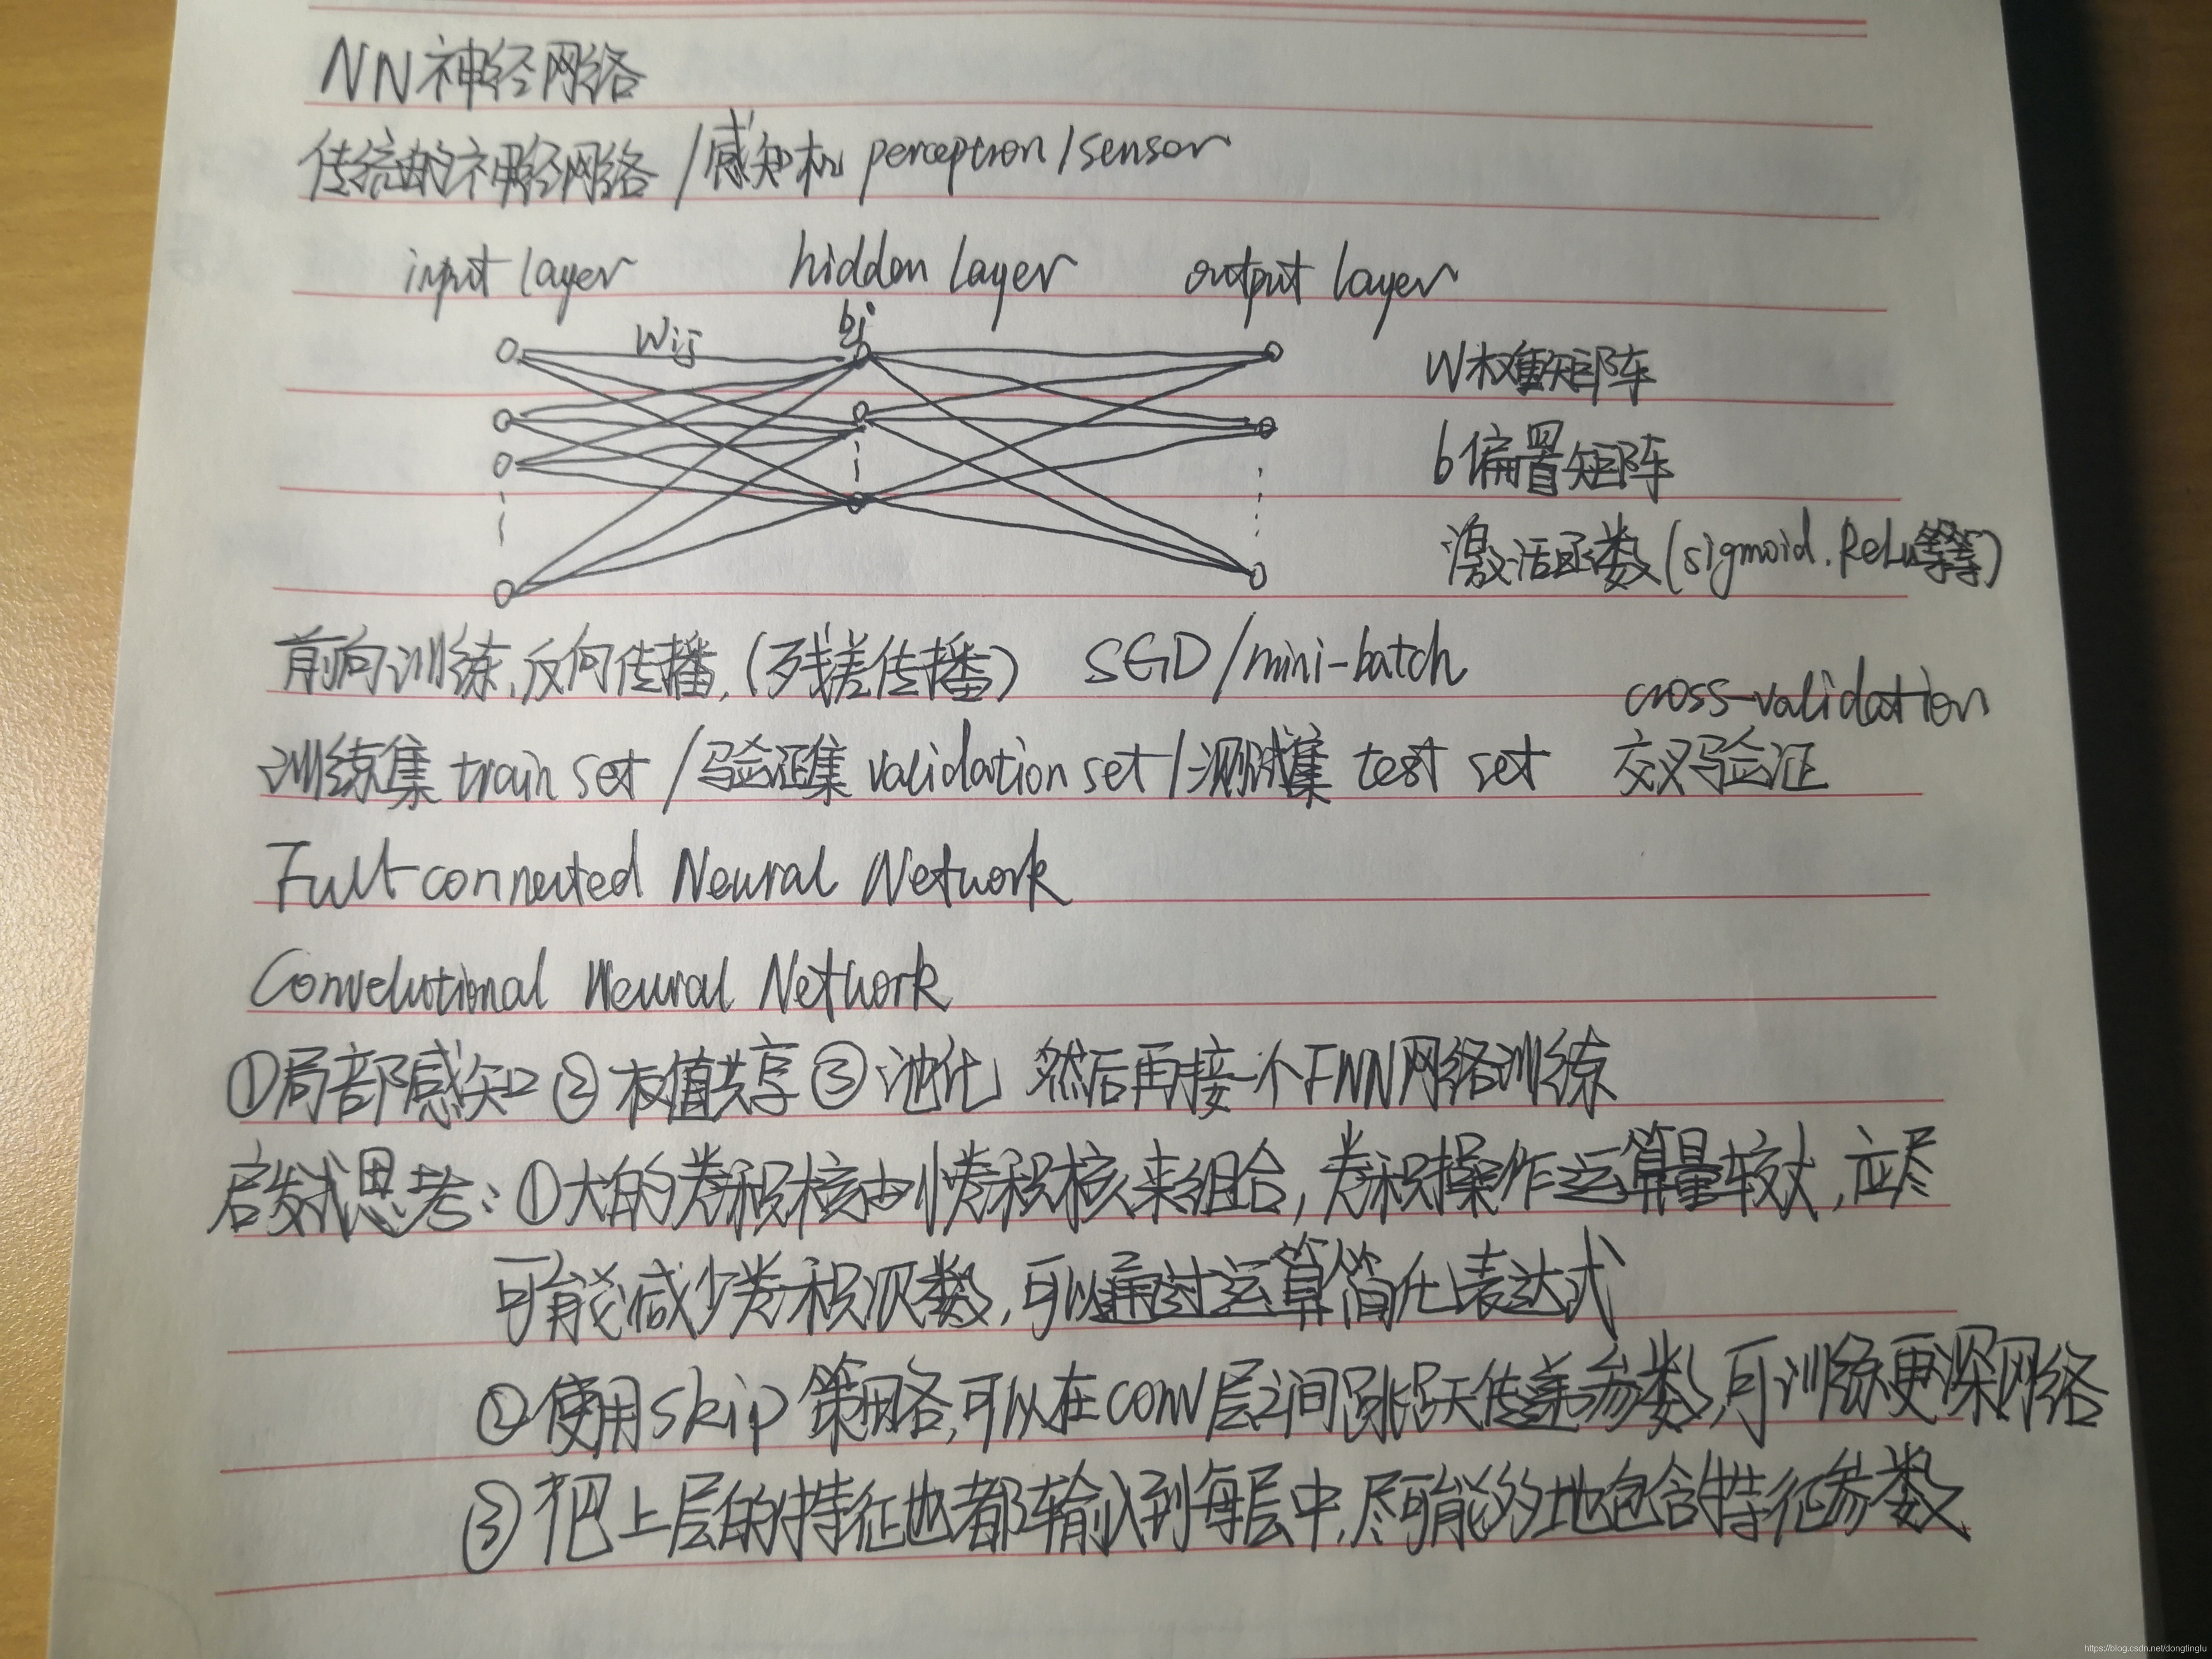 NN神经网络
传统的神经网络/感知机 perception/sensor
input layer hidden layer output layer
Wij bj
W权重矩阵
b偏置矩阵
激活函数(sigmoid.ReLu等等)
前向训练,反向传播,(残差传播) SGD/mini-batch
cross-validation
训练集 train set/验证集 validation set/测试集 test set 交叉验证
Full-connected Neural Network
Convolutional Neural Network
①局部感知②权值共享③池化 然后再接一个FNN网络训练
启发式思考:①大的卷积核由小卷积核来组合,卷积操作运算量较大,应尽
可能减少卷积次数,可以通过运算简化表达式
②使用skip策略,可以在conv层之间跳跃传递参数,可训练更深网络
③把上层的特征也都输入到每层中,尽可能多地包含特征参数
https://blog.csdn.net/dongtinglu